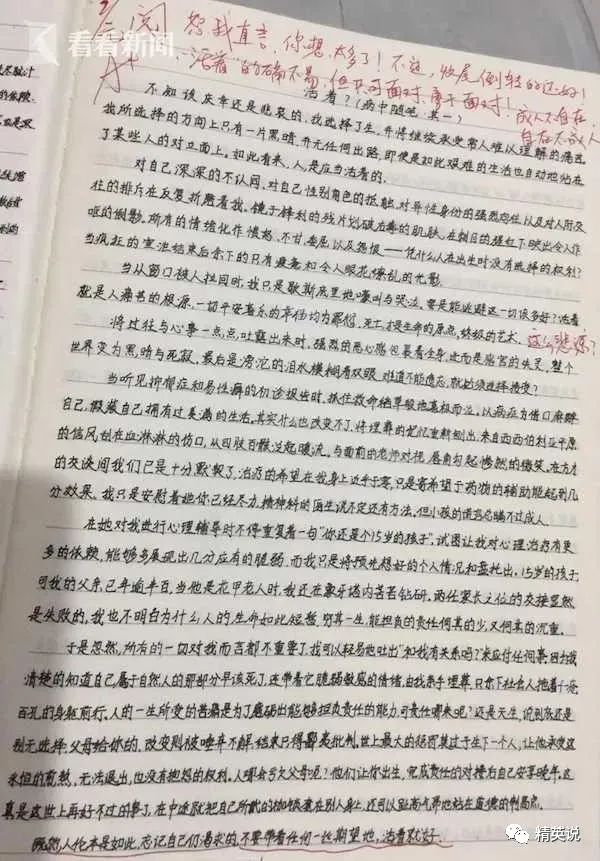 看看新闻
阅
A+
恕我直言,你想太多了!不过,收尾倒转的还好!
“活着”的确不易,但只可面对,勇于面对!
成人不自在,
自在不成人
活着?(病中随笔 其一)
不知该庆幸还是悲哀的,我选择了生,并将继续承受常人难以理解的痛苦
我所选择的方向上只有一片黑暗,并无任何出路,即便是如此艰难的生活也自动地站在
了某些人的对立面上。如此看来,人是应当活着的。
对自己深深的不认同,对自己性别角色的抵触,对异性身份的强烈向往以及对人际交
往的排斥在反复折磨着我。镜子锋利的残片划破
的肌肤,在朝日的
映出令人作
呕的倒影。所有的情绪化作愤怒、不甘、委屈以及怨恨——凭什么人在出生时没有选择的权利?
当疯狂的宣泄结束后余下的只有疲惫和令人眼花缭乱的光影。
当从窗口被人拉回时,我只是歇斯底里地嚎叫与哭泣。要是能逃避这一切该多好?活着
就是人痛苦的根源,一切平安喜乐的幸福均为罪恶,死亡才是生命的原点,终极的艺术。
这么悲凉?
将过往与心事一点点吐露出来时,强烈的恶心感包裹着全身,
感官的失灵,整个
世界变为黑暗与死寂,最后是滂沱的泪水模糊着双眼,难道不能遗忘,就必须选择接受?
当听见抑郁症和易性癖的初诊报告时,抓住救命稻草般地喜极而泣。以病症为借口麻醉
自己,假装自己拥有过美满的生活。其实什么也改变不了,将埋葬的记忆重新刨出,来自西西伯利亚平原
的信风刮在血淋淋的伤口,从四肢百骸泛起暖流。与面前的老师对视,唇角勾起惨然的微笑。在方才
的交谈间我们已是十分默契了,治疗的希望在我身上近乎于零,只是寄希望于药物的辅助能起到几
分效果。我只是安慰着她你已经尽力,精神科的医生说不定还有办法,但小孩的谎言总瞒不过成人。
在她对我进行心理辅导时不停重复着一句“你还是个15岁的孩子”,试图让我对心理治疗有更
多的依赖,能够多展现出几分应有的脆弱。而我只是将预先想好的个人情况和盘托出。15岁的孩子
可我的父亲,已年逾半百,当他是花甲老人时,我还在象牙塔内苦苦钻研。两任家长之位的交接显然
是失败的,我也不明白为什么人的生命如此短暂,穷其一生,能担负的责任何其的少,又何其的沉重。
于是忽然,所有的一切对我而言都不重要了,我可以轻易地吐出“和我有关系吗?”来应付任何事,因为我
清楚的知道自己属于自然人的那部分早该死了,连带着它脆弱敏感的情绪,由我亲手埋葬。只余下社会人拖着千疮
百孔的身躯前行。人的一生所受的苦痛是为了磨砺出能够担负责任的能力,可责任哪来呢?还是天生,说到底还是
别无选择:父母给你的,改变则被唾弃不解,结束只得
批判。世上最大的惩罚莫过于生下一个人,让他承受这
永恒的煎熬,无法退出,也没有抱怨的权利。人哪会亏欠父母呢?他们让你出生,完成责任的对接后自己安享晚年,这
真是这世上再好不过的事了,在中途就把自己所戴的枷锁套在别人身上,还可以趾高气昂地站在道德的制高点。
既然人伦本是如此,忘记自己所渴求的,不要带着任何一些期望地,活着就好。
精英说